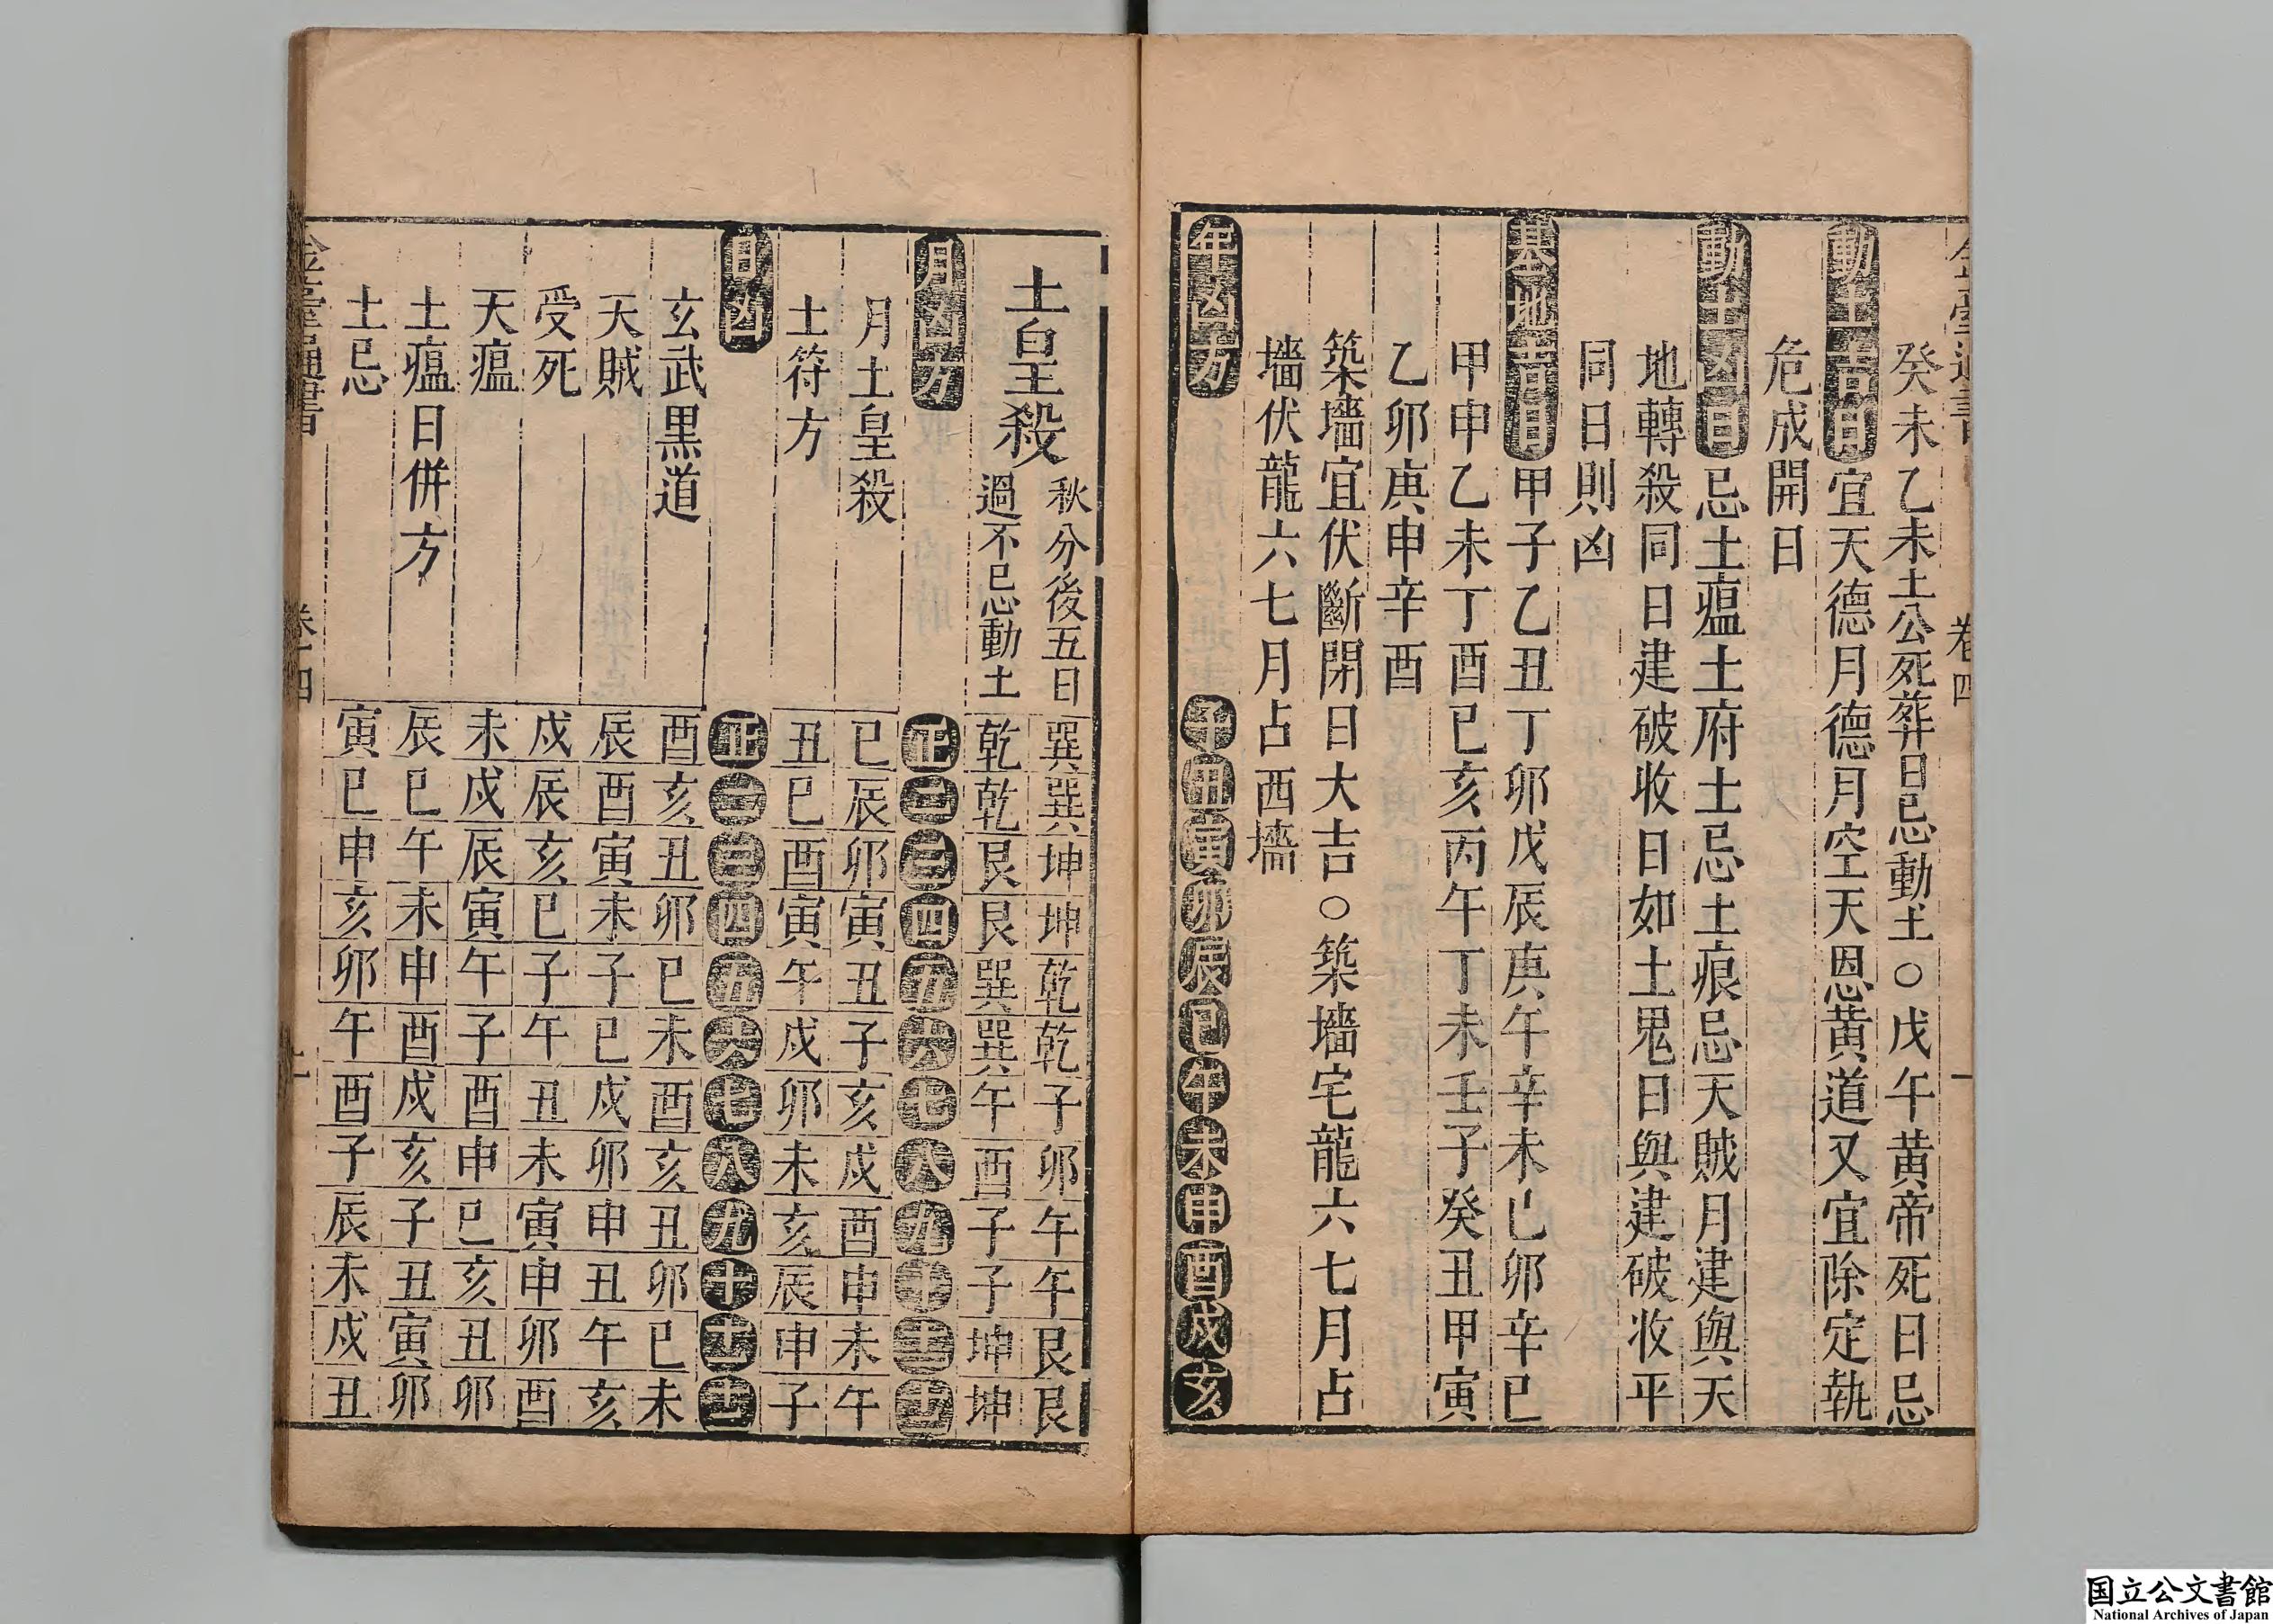 癸未乙未土公死葬日忌動土○戊午黄帝死日忌
動土吉日宜天德月德月空天恩黄道又宜除定執
危成開日
動土凶日忌土瘟土府土忌土痕忌天賊月建與天
地轉殺同日建破收日如土鬼日與建破收平
同日則凶
基地吉日甲子乙丑丁卯戊辰庚午辛未己卯辛巳
甲申乙未丁酉己亥丙午丁未壬子癸丑甲寅
乙卯庚申辛酉
築墻宜伏斷閉日大吉○築墻宅龍六七月占
墻伏龍六七月占西墻
年凶方 子丑寅卯辰巳午未申酉戌亥
土皇殺 秋分後五日 巽巽坤坤乾乾子卯午午艮艮
過不忌動土 乾乾艮艮巽巽午酉子子坤坤
月凶方 正二三四五六七八九十十一十二
月土皇殺 巳辰卯寅丑子亥戌酉申未午
土符方 丑巳酉寅午戌卯未亥辰申子
日凶 正二三四五六七八九十十一十二
玄武黒道 酉亥丑卯巳未酉亥丑卯巳未
天賊 辰酉寅未子巳戌卯申丑午亥
受死 戌辰亥巳子午丑未寅申卯酉
天瘟 未戌辰寅午子酉申巳亥丑卯
土瘟日併方 辰巳午未申酉戌亥子丑寅卯
土忌 寅巳申亥卯午酉子辰未戌丑
卷四
国立公文書館
National Archives of Japan